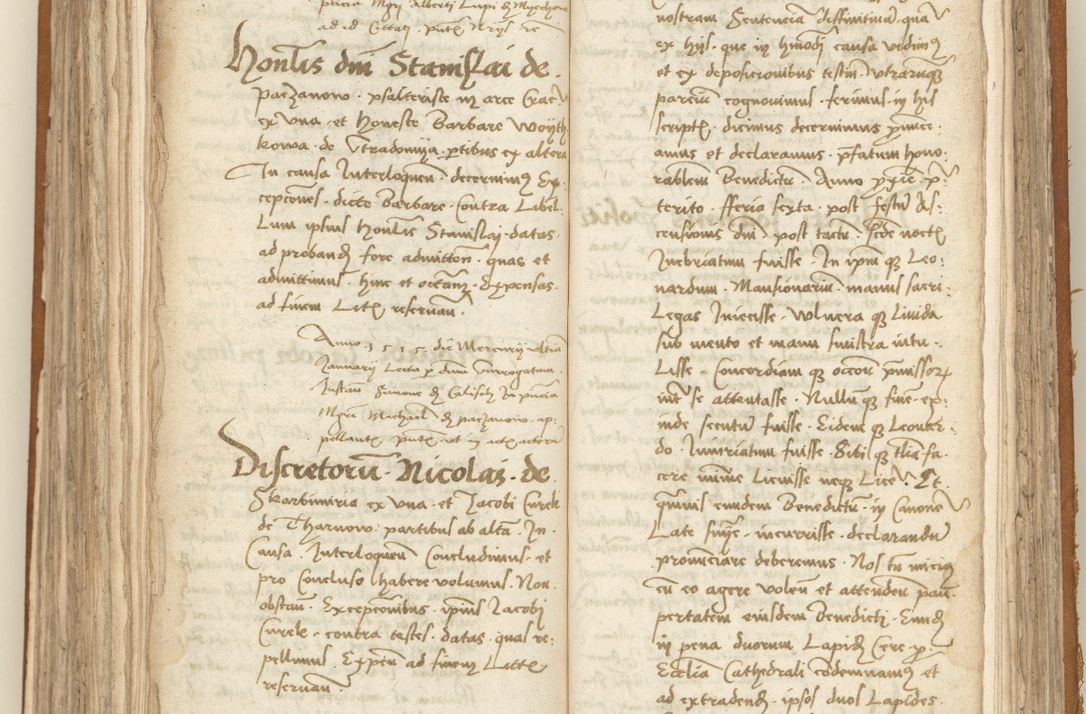 petitia Mgri Alberti Lupi de
ad id Citati
Honlis dni Stanislai de
Paczanowo psalteriste in arce Crac
ex una et honeste Barbare Woyth
kowa de partibus ex altera
In causa Interloquen decernimus Ex
cepciones dicte Barbare contra Libel
Lum ipsius honlis Stanislaj datas
ad proband fore admitten quas et
admittimus hinc et Expensas
ad finem Litis reservan
Anno 1535 die Mercurij ultia
January Lecta p dnm Surrogatum
Instan Simone de Calisch In pncia
Mgri Michael de paczanowo ap
pellante puten et in actis actora
Discretoru Nicolai de
Skarbimiria ex una et Jacobi Curek
de Tharnovo partibus ab altera In
Causa Interloquen Concludimus et
pro Concluso habere volumus Non
obstan Excepcionibus ipius Jacobj
Curek contra testes datas quas re
pellimus Expen ad finem Littis
reservan
nostram Sentencia diffinitiva qua
ex hijs que in hmodj causa vidimus
et ex deposicionibus testm utrarumque
parcium cognovimus ferimus in his
scriptis dicimus decernimus pnunci
amus et declaramus pfatum hono
rablem Benedictu Anno pxie p
terito fferia sexta post festu As
censionis dni post tacta noctis
Inebriatum fuisse In ipm que Leo
nardum Mansionariu manus sacri
Legas Iniecisse Wlnera que Livida
sub mento et manu sinistra intu
Lisse Concordiam que pmissor
int se attentasse Nullum que fine ex
inde secutu fuisse Eidem que Leonar
do Iniuriatum fuisse Sibi que talia fa
cere minime Licuisse neque Lice Et
qvis eundem Benedictu in Canone
Late snie incurrisse declarandu
pronunciare deberemus Nos tn micius
cu eo agere volen et attenden pau
pertatem eiusdem Benedicti Eund
in pena duorum Lapid Cere p
Ecclia Cathedrali condemnamus et
ad extradend ipsos duos Lapides